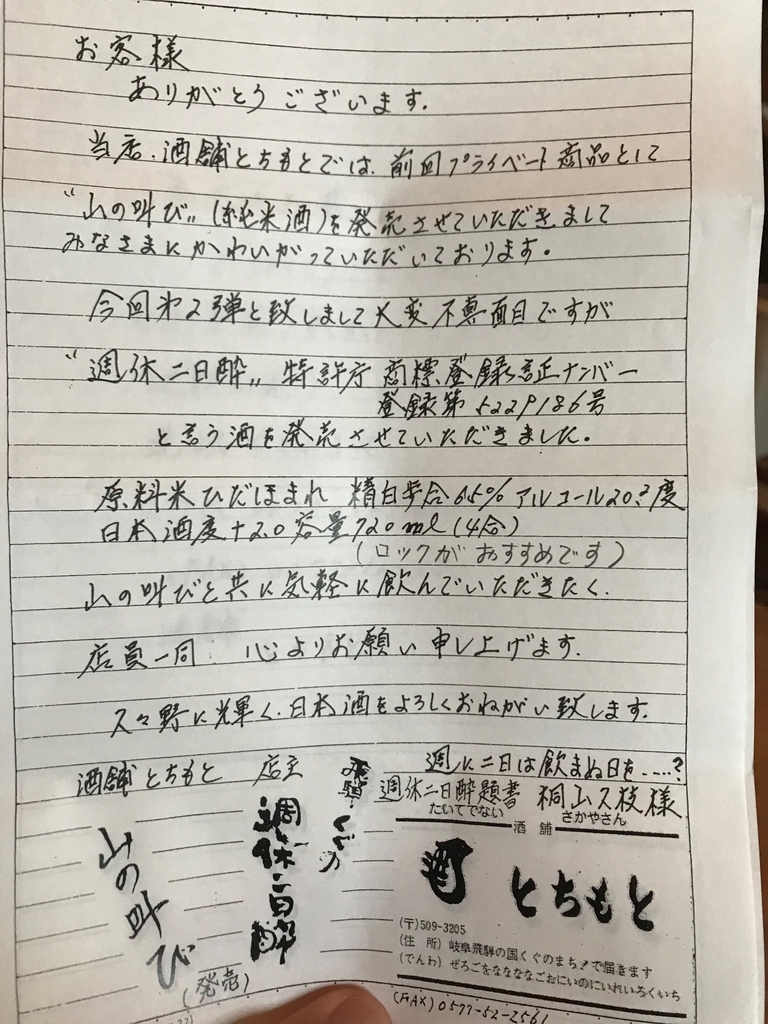 お客様
ありがとうございます.
当店.酒舗とちもとでは.前回プライベート商品として
"山の叫び„(純米酒)を発売させていただきまして
みなさまにかわいがっていただいております。
今回第2弾と致しまして大変不真面目ですが
"週休二日酔„ 特許庁 商標登録証ナンバー
登録第5229186号
と言う酒を発売させていただきました。
原料米ひだほまれ 精白歩合65% アルコール20.?度
日本酒度+2.0 容量720ml(4合)
(ロックがおすすめです)
山の叫びと共に気軽に飲んでいただきたく.
店員一同 心よりお願い申し上げます.
久々野に光輝く.日本酒をよろしくおねがい致します.
酒舗とちもと 店主
週に二日は飲まぬ日を.....?
週休二日酔題書 桐山久枝様
たいてでない 酒舗 さかやさん
酒 とちもと
(〒)509-3205
(住 所) 岐阜飛騨の国くぐのまち!で届きます
(でんわ) ぜろごをななななごおにいのにいれいろくいち
(FAX) 0577-52-2561
飛騨・くぐの
週休二日酔
山の叫び
(発売)